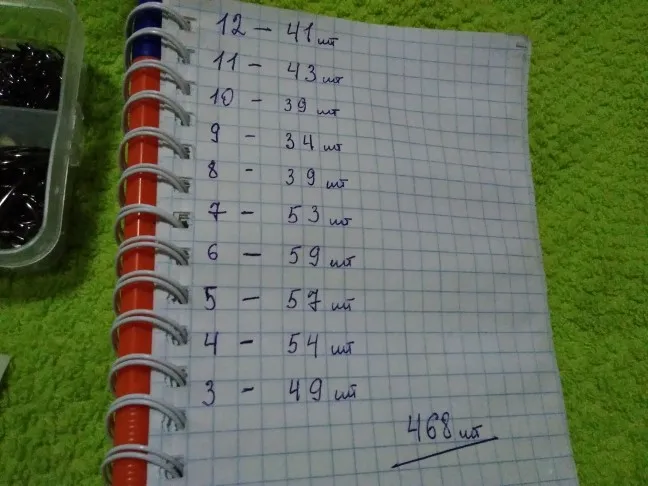 12 - 41 шт
11 - 43 шт
10 - 39 шт
9 - 34 шт
8 - 39 шт
7 - 53 шт
6 - 59 шт
5 - 57 шт
4 - 54 шт
3 - 49 шт
468 шт